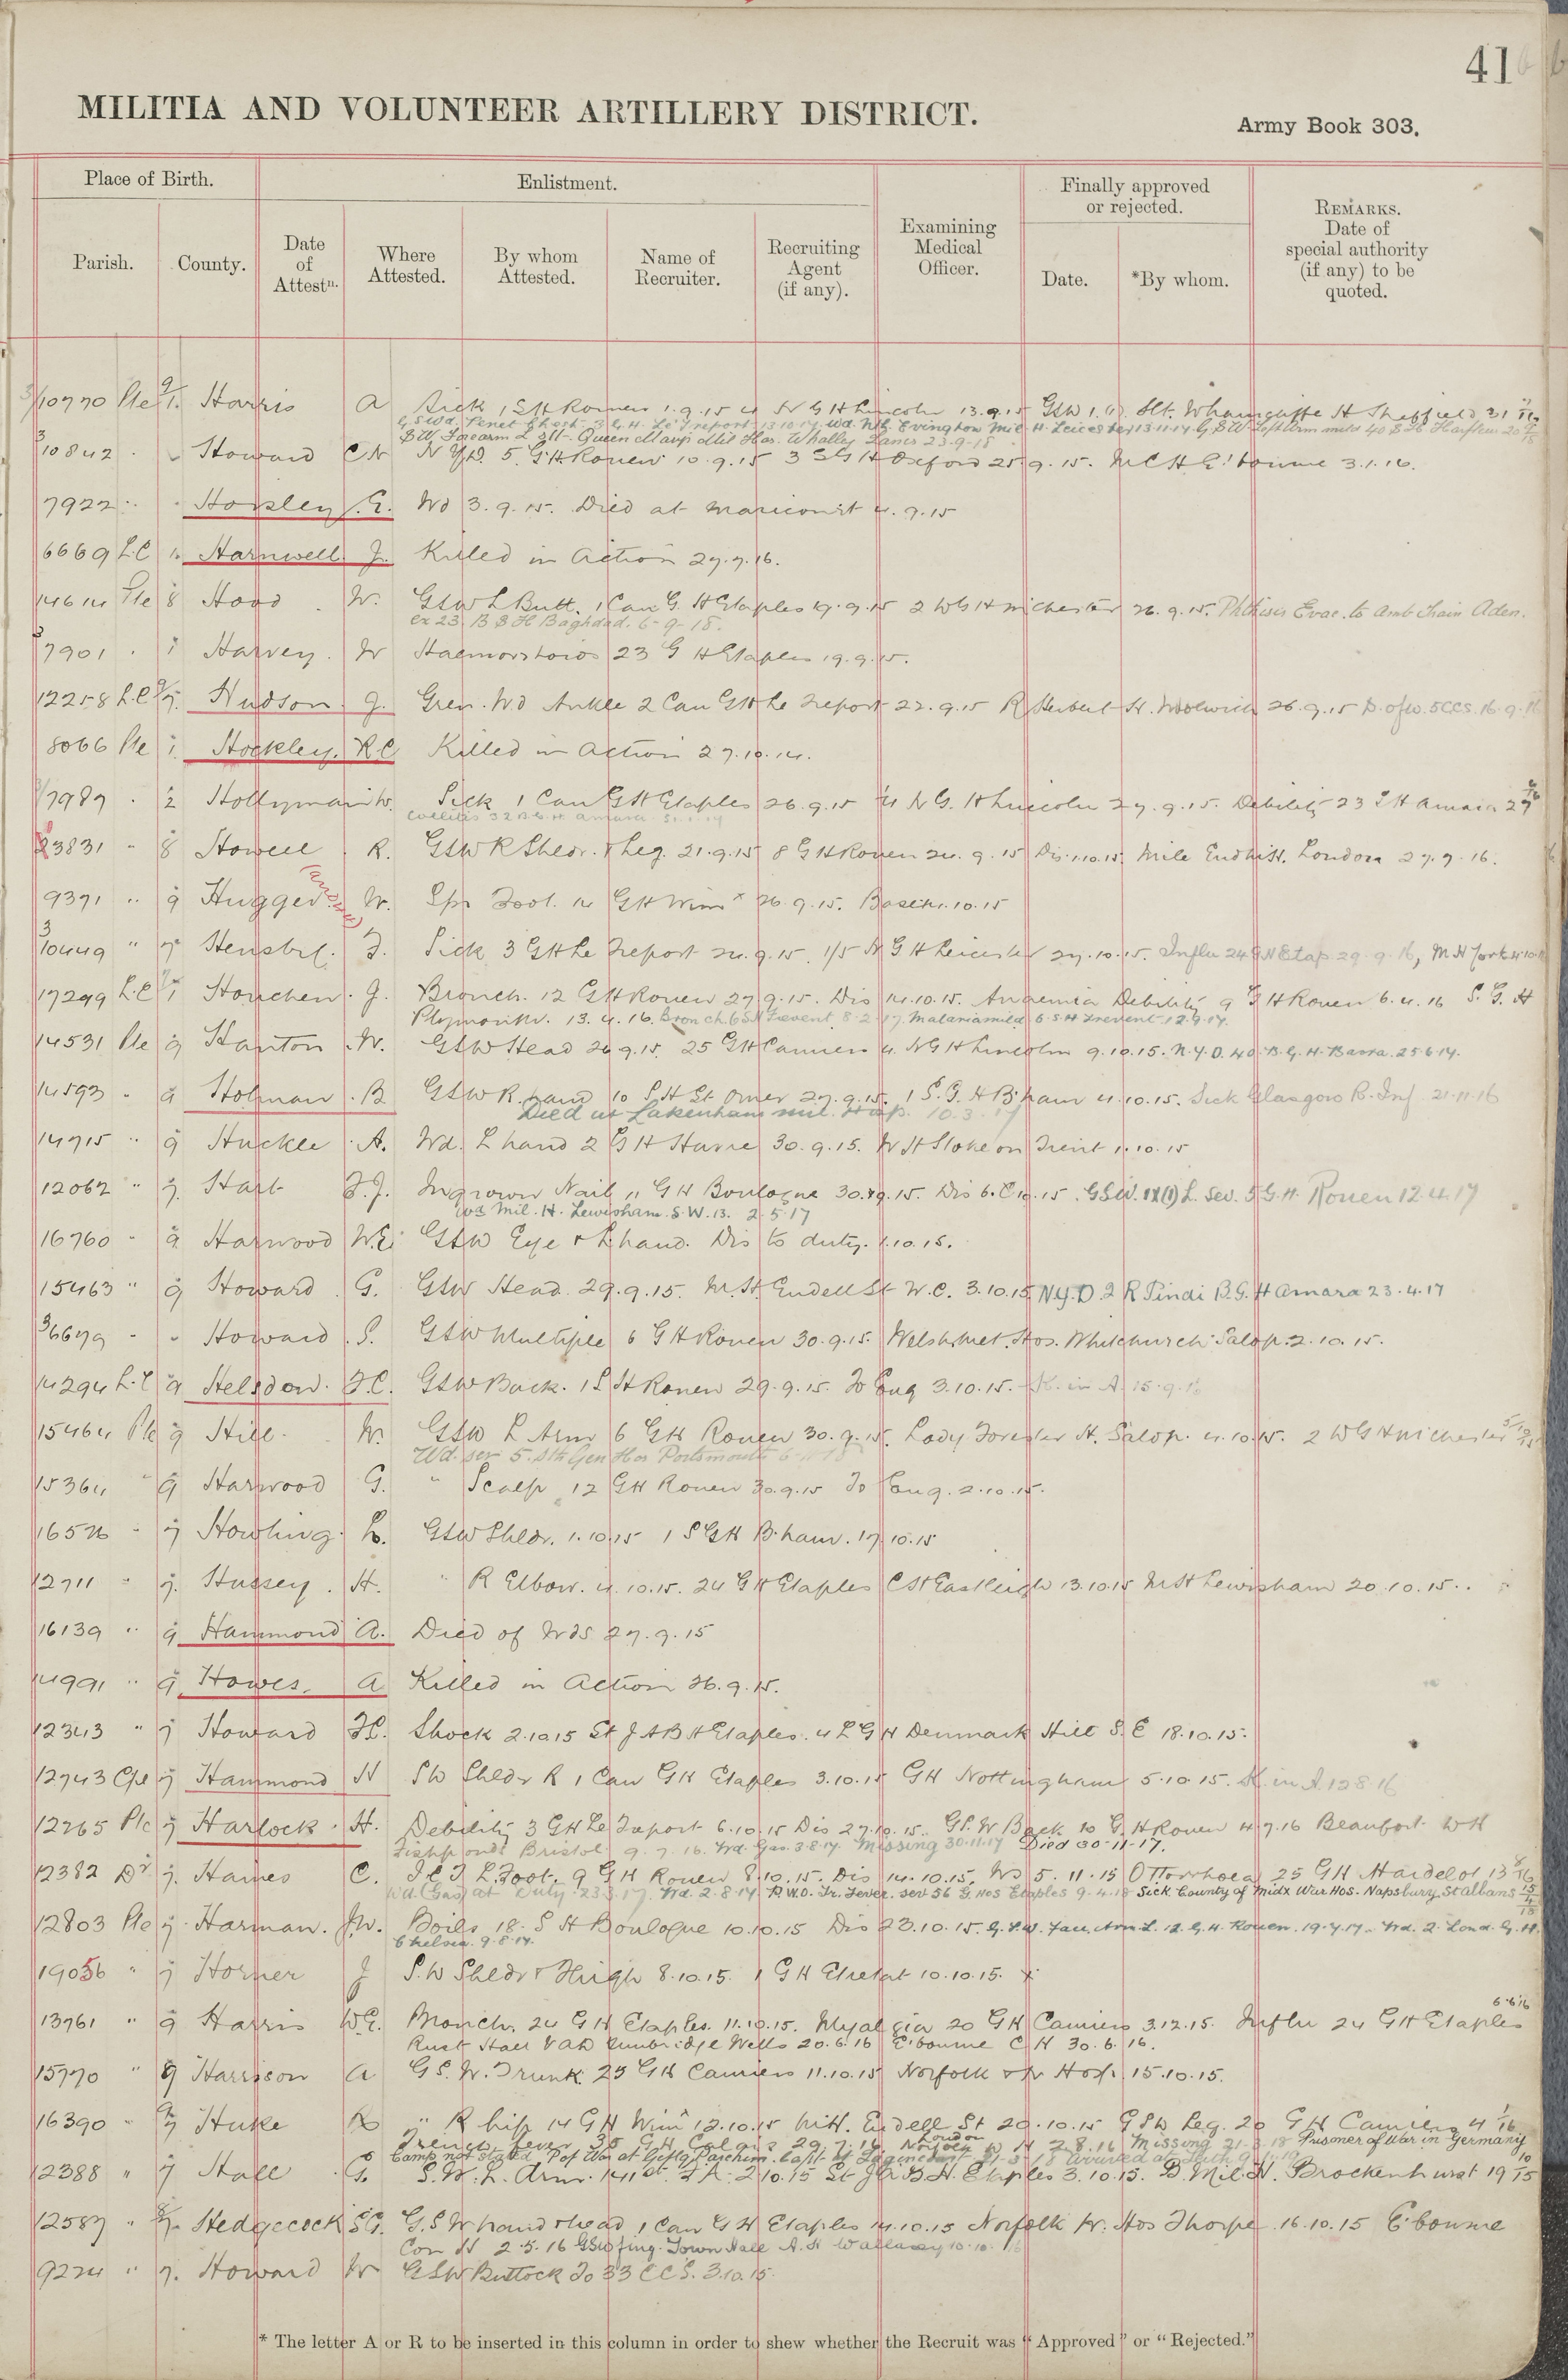 41
MILITIA AND VOLUNTEER ARTILLERY DISTRICT.
Army Book 303.
Place of Birth.
Enlistment.
Finally approved or rejected.
Parish.
County.
Date of Attestn.
Where Attested.
By whom Attested.
Name of Recruiter.
Recruiting Agent (if any).
Examining Medical Officer.
Date.
*By whom.
REMARKS. Date of special authority (if any) to be quoted.
3/10770 Pte 9/1. Harris A Sick 1 S H Rouen 1.9.15 4 N G H Lincoln 13.9.15 GSW Slt. Wharncliffe H Sheffield 31
GSWd. Penet Chest 3 G.H. Le Treport 13.10.17. Wd. Nth Evington Mil. H. Leicester 13.11.17. G.S.W. Left Arm 40 S H Harfleur 20
S.W. Forearm L Queen Marys Mil Hos. Whalley Lancs 23-9-18
3/10842 Howard C N N Y D. 5 G H Rouen 10.9.15 3 S G H Oxford 25.9.15. M C H E'bourne 3.1.16.
7922 Horsley G. Wd 3.9.15. Died at Maricourt 4.9.15
6669 L.C 1. Harnwell J. Killed in Action 27.7.16.
14614 Pte 8 Hood W. GSW L Butt. 1 Can G. H Etaples 19.9.15 2 W G H M'chester 26.9.15. Phthisis Evac. to Amb Train Aden.
ex 23. B S H Baghdad. 6-9-18.
3/7901 1 Harvey. W Haemorrhoids 23 G H Etaples 19.9.15.
12258 L.C 9/7. Hudson J. Gren. Wd Ankle 2 Can G H Le Treport 22.9.15 R Herbert H. Woolwich 26.9.15 D. of W. 5 CCS. 16.9.16
8066 Pte 1 Hockley. R.C Killed in Action 27.10.14.
3/7987 2 Hollyman W. Sick 1 Can G H Etaples 26.9.15 4 N G. H Lincoln 27.9.15. Debility 23 S H Amara 27
Collitis 32 B.G.H. Amara
23831 8 Howell R. GSW R Shldr. & Leg. 21.9.15 8 G H Rouen 24.9.15 Dis 1.10.15. Mile End Mil H. London 27.7.16.
9371 9 Hugger W. Spr Foot. 14 G H Wimx 26.9.15. Base 1.10.15
3/10449 7 Hensby. F. Sick 3 G H Le Treport 24.9.15. 1/5 N G H Leicester 27.10.15. Influ 24 G H Etap 29.9.16, M H York 4.10.16
17299 L.C 1 Honchen. J. Bronch. 12 G H Rouen 27.9.15. Dis 14.10.15. Anaemia Debility 9 G H Rouen 6.4.16 S. G. H
Plymouth. 13.4.16. Bronch. 6 S H Frevent 8.2.17. Malaria mild 6 S H Frevent 12.9.17.
14531 Pte 9 Hanton W. GSW Head 26.9.15. 25 G H Camiers 4 N G H Lincoln 9.10.15. N.Y.D. 40 B.G.H. Basra. 25.6.17.
14593 9 Holman B GSW R. hand 10 S H St Omer 27.9.15. 1 S. G. H B'ham 4.10.15. Sick Glasgow R. Inf. 21.11.16
Died at Lakenham Mil. Hosp. 10.3.17
14715 9 Huckle A. Wd. L hand 2 G H Havre 30.9.15. W H Stoke on Trent 1.10.15
12062 7. Hart F.J. Ingrown Nail 11 G H Boulogne 30.9.15. Dis 6.10.15. GSW. L. Sev. 5 G.H. Rouen 12.4.17
Wd Mil. H. Lewisham. S.W.13. 2.5.17
16760 9 Harwood W.E. GSW Eye & L hand. Dis to duty. 1.10.15.
15463 9 Howard G. GSW Head. 29.9.15. M.H. Endell St W.C. 3.10.15 N.Y.D. 2 R Pindi B.G.H Amara 23.4.17
3/6679 Howard S. GSW Multiple 6 G H Rouen 30.9.15. Welsh Met. Hos. Whitchurch Salop. 2.10.15.
14294 L.C 9 Helsdon. F.C. GSW Back. 1 S H Rouen 29.9.15. To Eng 3.10.15. K. in A 15.9.16
15464 Pte 9 Hill. W. GSW L Arm 6 G H Rouen 30.9.15. Lady Forester H. Salop. 4.10.15. 2 W G H M'chester
Wd. ser 5. Sth Gen Hos Portsmouth
15364 9 Harwood G. " Scalp 12 G H Rouen 30.9.15 To Eng. 2.10.15.
16526 7 Howling. L. GSW Shldr. 1.10.15 1 S G H B'ham. 17.10.15
12711 7. Hussey. H. " R Elbow. 4.10.15. 24 G H Etaples C H Eastleigh 13.10.15 M H Lewisham 20.10.15.
16139 9 Hammond A. Died of Wds 27.9.15
14991 9. Howes. A Killed in Action 26.9.15.
12343 7 Howard F.C. Shock 2.10.15 St J A B H Etaples. 4 L G H Denmark Hill S.E 18.10.15.
12743 Cpl 7 Hammond H SW Shldr R 1 Can G H Etaples 3.10.15 G H Nottingham 5.10.15. K in A 12 8 16
12265 Pte 7 Harlock H. Debility 3 G H Le Treport 6.10.15 Dis 27.10.15. GS.W Back 10 G. H Rouen 4.7.16 Beaufort W H
Fishponds Bristol 9.7.16. Wd. Gas. 3.8.17. Missing 30.11.17 Died 30-11-17.
12382 Dr 7. Haines C. I C T L. Foot. 9 G H Rouen 8.10.15. Dis 14.10.15. Wd 5.11.15 Ottorrhoea 25 G H Hardelot 13
Wd (Gas) at duty 23.3.17. Wd. 2.8.17. P.U.O. Tr. Fever. sev 56 G. Hos Etaples 9.4.18 Sick County of Midx War Hos. Napsbury, St Albans
12803 Pte 7 Harman. J.W. Boils 18. S H Boulogne 10.10.15 Dis 23.10.15. G.S.W. Face, Arm L. 12 G.H. Rouen. 19.7.17. Wd. 2 Lond. G.H.
Chelsea. 9.8.17.
19056 7 Horner J S.W Shldr & Thigh 8.10.15. 1 G H Etretat 10.10.15.
13761 9 Harris W.G. Bronch. 24 G H Etaples. 11.10.15. Myalgia 20 G H Camiers 3.12.15. Influ 24 G H Etaples 6.6.16
Rust Hall VAD Tunbridge Wells 20.6.16 E'bourne C H 30.6.16.
15770 9 Harrison A G S. W. Trunk. 25 G H Camiers 11.10.15 Norfolk & N Hosp. 15.10.15.
16390 7 Huke " R hip 14 G H Wimx 12.10.15 M H. Endell St 20.10.15 GSW Leg. 20 G H Camiers 4
Trench Fever 35 G H Calais 29.7.16. Norfolk W H 2.8.16 Missing 21.3.18 Prisoner of War in Germany
Camp not stated. P of War at Parchim.
12388 7 Hall G. S.W. L. Arm. 141st F A. 2.10.15 St J A B.H. Etaples 3.10.15. B. Mil. H. Brockenhurst 19
12587 7 Hedgecock S.G. G.S W hand & head 1 Can G H Etaples 14.10.15 Norfolk W. Hos Thorpe 16.10.15 E'bourne
Con H 2.5.16 GSW fing. Town Hall A. H Wallasey
9224 7. Howard W GSW Buttock To 33 CCS. 3.10.15.
* The letter A or R to be inserted in this column in order to shew whether the Recruit was "Approved" or "Rejected."